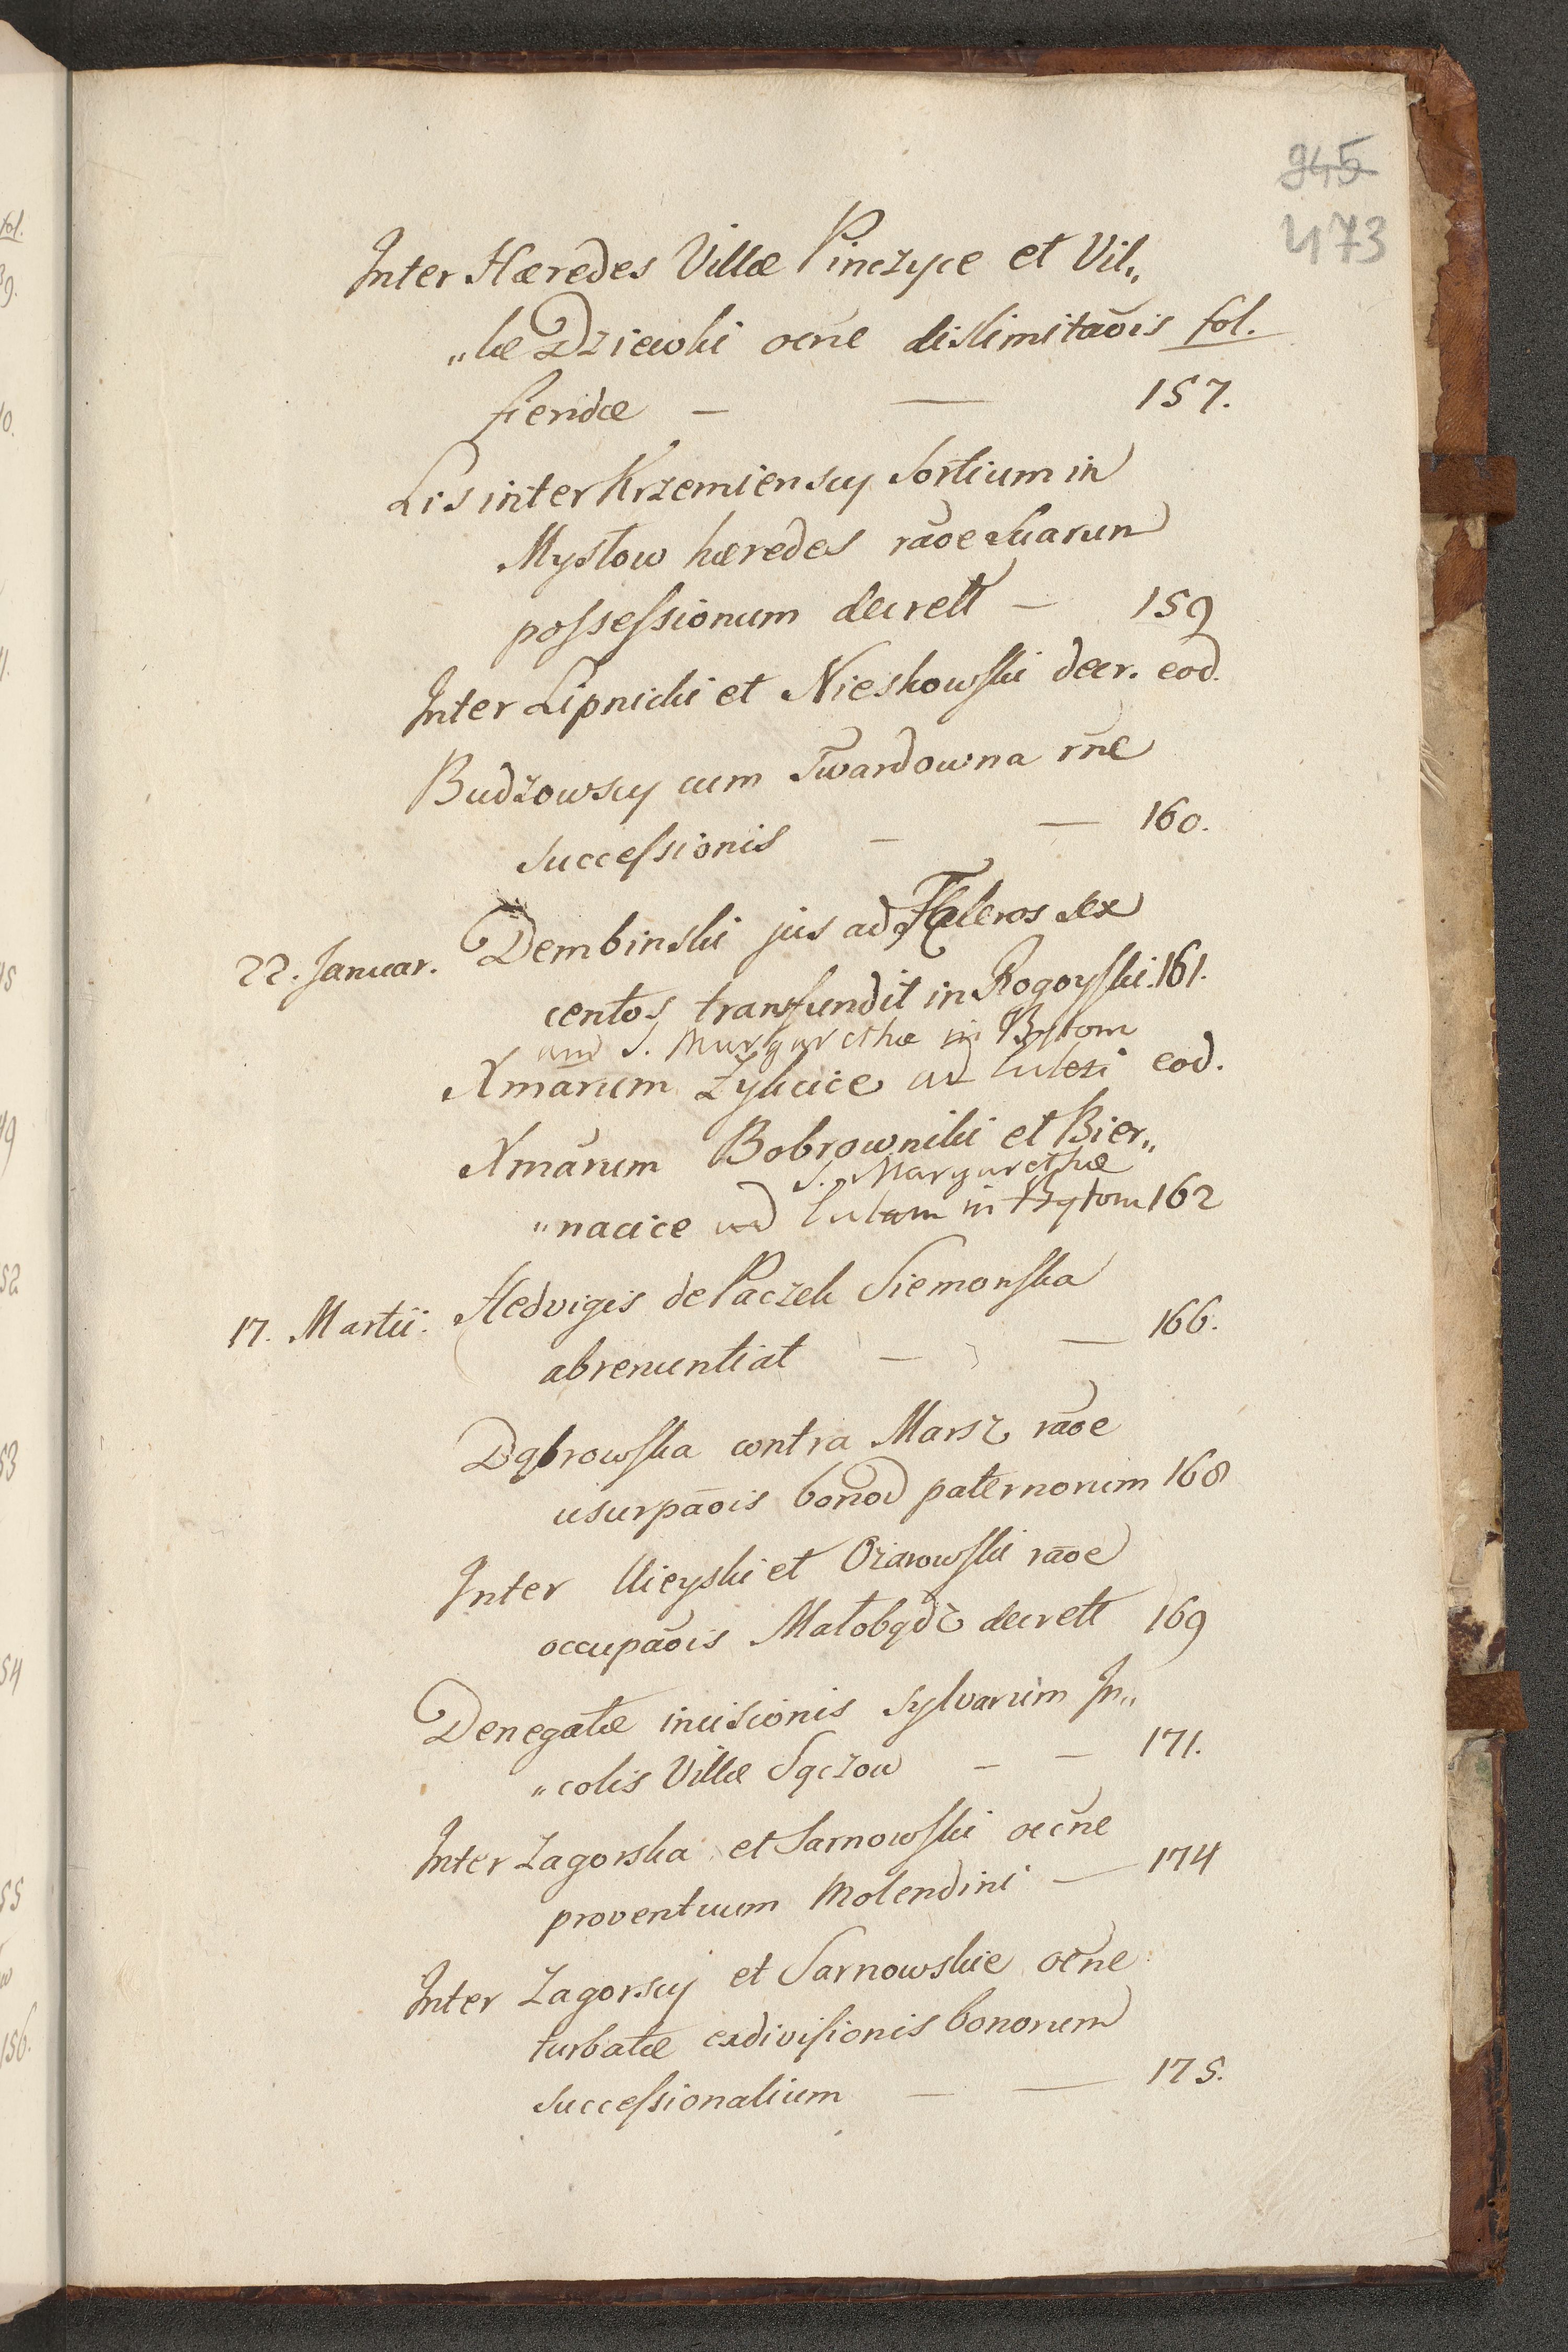 945
473
Inter Hæredes Villæ Pinczyce et Vil„
„læ Dziewki ocne dislimitaōis fol.
fiendæ — — 157.
Lis inter Krzemienscy Sortium in
Mysłow hæredes raōe suarum
possessionum decrett — 159
Inter Lipnicki et Nieskowski decr. eod.
Budzowscy cum Twardowna rn̄e
successionis — — 160.
22. Januar. Dembinski jus ad Taleros sex
centos transfundit in Rogoyski. 161.
S. Margarethæ in Bytom
Xmarum Zykcice ad eod.
Xmarum Bobrowniki et Bier„
S. Margarethæ
„nacice ad in Bytom 162
17. Martii. Hedvigis de Paczek Siemonska
abrenuntiat — — 166.
Dąbrowska contra Marsz raōe
usurpaōis bonoȝ paternorum 168
Inter Ujeyski et Ożarowski raōe
occupaōis Małobądz decrett 169
Denegatæ incisionis sylvarum In„
„colis Villæ Sączow — — 171.
Inter Zagorska et Sarnowski occn̄e
proventuum Molendini — 174
Inter Zagorscy et Sarnowskie ocn̄e
turbatæ exdivisionis bonorum
successionalium — — 175.
fol.
39.
156.